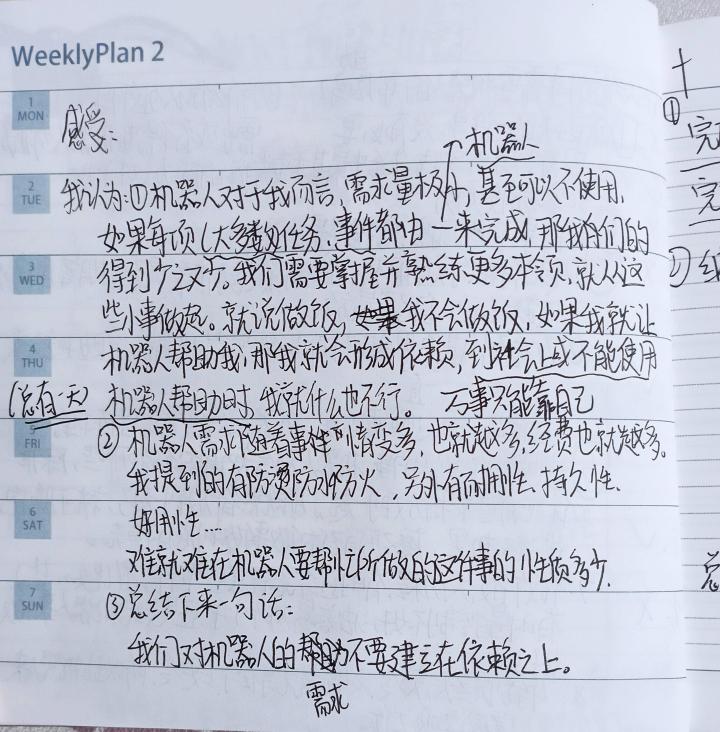 WeeklyPlan 2
1 MON
感受:
机器人
2 TUE
我认为:①机器人对于我而言,需求量极小,甚至可以不使用,
如果每项(大多数)任务、事件都由一来完成,那我们的
3 WED
得到少之又少。我们需要掌握并熟练更多本领,就从这
些小事做起。就说做饭,如果我不会做饭,如果我就让
4 THU
机器人帮助我,那我就会形成依赖,到社会上或不能使用
(总有一天)机器人帮助时,我就什么也不行。 万事只能靠自己
5 FRI
②机器人需求随着事件 情变多,也就越多,经费也就越多。
我提到的有防烫防水防火,另外有耐用性、持久性、
6 SAT
好用性....
难就难在机器人要帮忙所做的这件事的性质多少.
7 SUN
③总结下来一句话:
我们对机器人的帮助不要建立在依赖之上。
需求
①
完
完
②
总